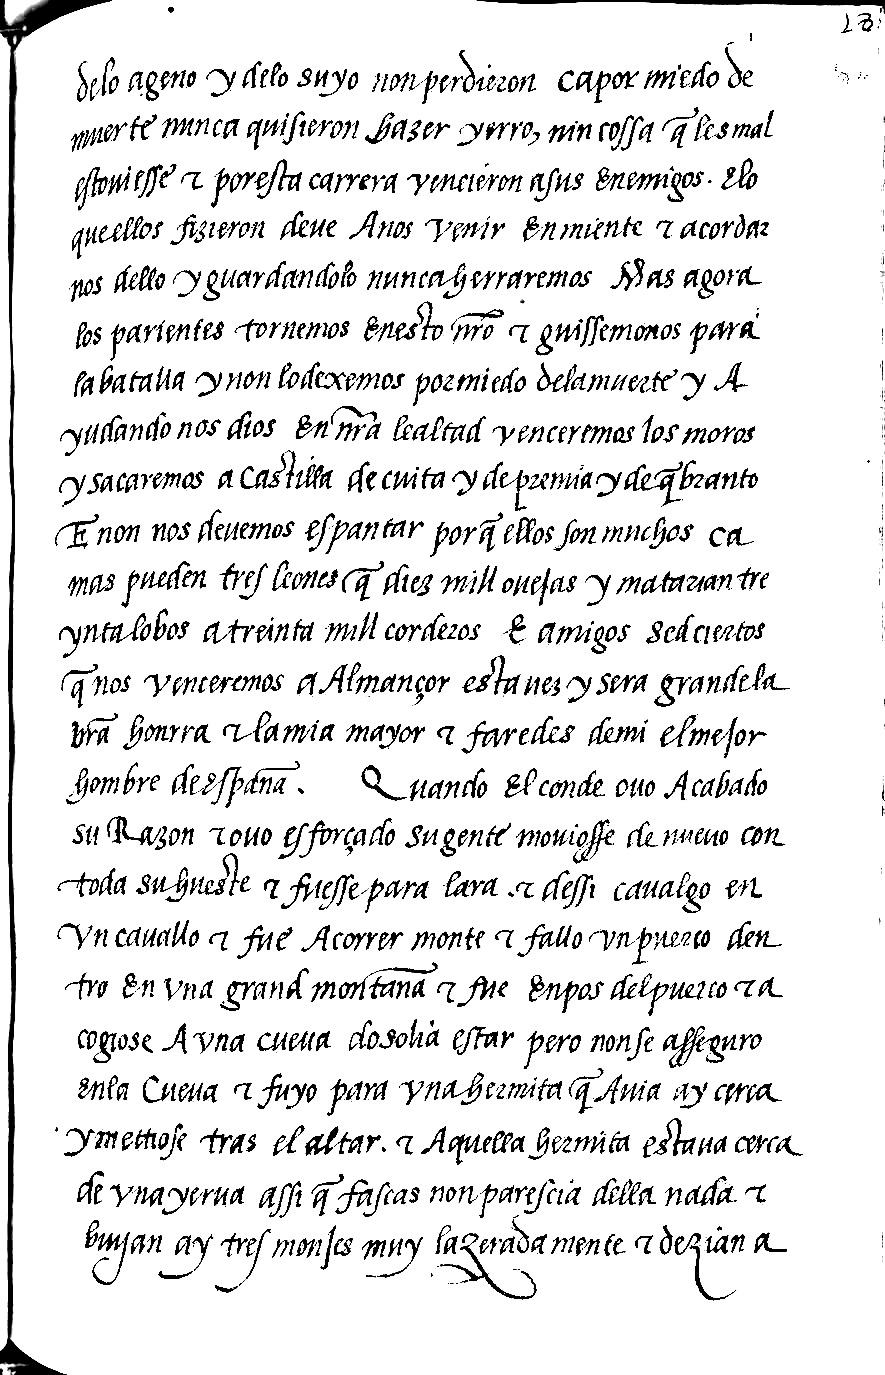 delo ageno y delo suyo non perdieron ca por miedo de
muerte nunca quisieron hazer yerro, nin cossa q̃ les mal
estouiesse τ por esta carrera vencieron a sus Enemigos. Elo
que ellos fizieron deue Anos venir En miente τ acordar
nos dello y guardandolo nunca herraremos Mas agora
los parientes tornemos Enesto nr̃o τ guissemonos para
la batalla y non lo dexemos por miedo dela muerte y A
yudando nos dios En nr̃a lealtad venceremos los moros
y sacaremos a Castilla de cuita y de premia y de q̃branto
E non nos deuemos espantar porq̃ ellos son muchos ca
mas pueden tres leones q̃ diez mill ouejas y matarian tre
ynta lobos a treinta mill corderos E amigos sed ciertos
q̃ nos venceremos a Almançor esta uez y sera grande la
br̃a honrra τ la mia mayor τ faredes de mi el mejor
hombre de españa. Quando El conde ouo Acabado
su Razon τ ouo esforçado su gente mouiosse de nueuo con
toda su hueste τ fuesse para lara .τ dessi caualgo en
vn cauallo τ fue Acorrer monte τ fallo vn puerco den
tro En vna grand montaña τ fue Enpos del puerco τ a
cogiose A vna cueua do solia estar pero non se asseguro
Enla Cueua τ fuyo para vna hermita q̃ Auia ay cerca
y mettiose tras el altar. τ Aquella hermita estaua cerca
de vna yerua assi q̃ fascas non parescia della nada τ
biujan ay tres monjes muy lazeradamente τ dezian a